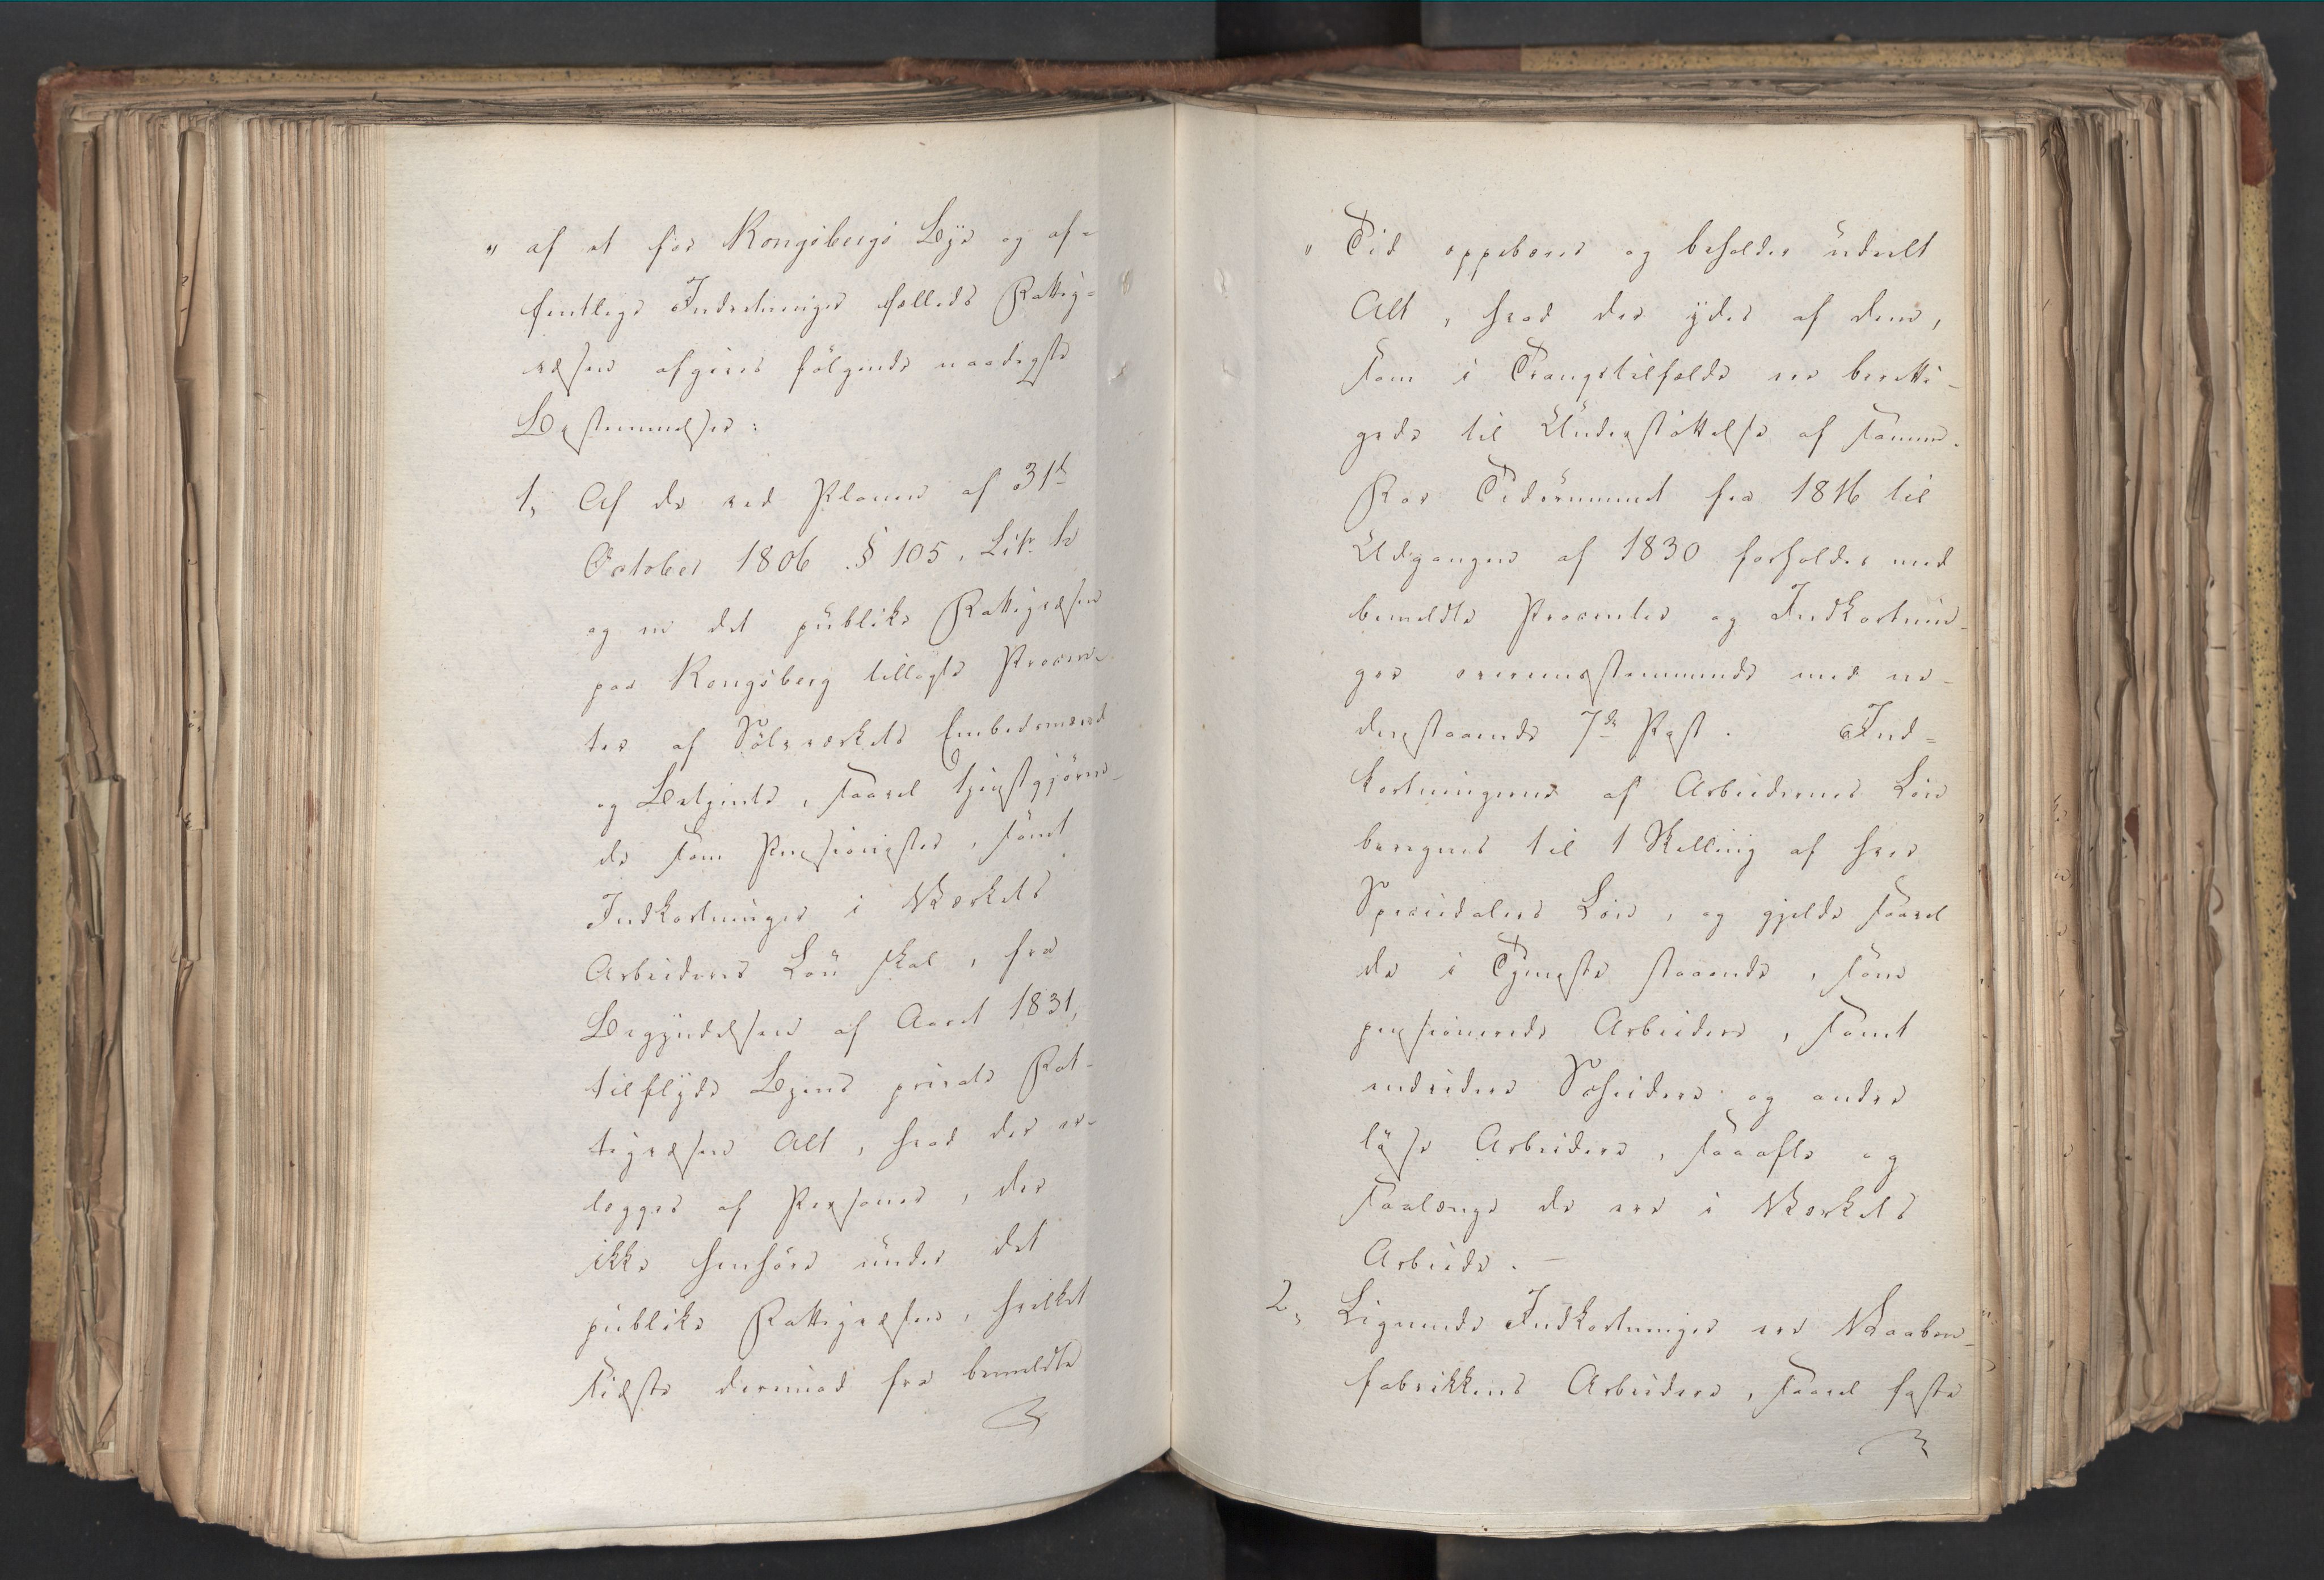 " af at for Kongsbergs Bye og of-
fentlige Indretninger fælleds Fattig-
væsen afgives følgende naadigste
Bestemmelser:
1, Af de ved Planen af 31te
October 1806 § 105, Litr. h
og m det publike Fattigvæsen
paa Kongsberg tillagte Procen-
ter af Sölvværkets Embedsmænd
og Betjente, saavel tjenstgjören-
de som Pensionister, samt
Indkortninger i Værkets
Arbeideres Lön skal, fra
Begyndelsen af Aaret 1831,
tilflyde Byens private Fat-
tigvæsen Alt, hvad der er-
lægges af Personer, der
ikke henhöre under det
publike Fattigvæsen, hvilket
sidste derimod fra bemeldte
" Tid oppebærer og beholder udeelt
Alt, hvad der ydes af dem,
som i Trangstilfælde ere beretti-
gede til Understöttelse af samme.
For Tidsrummet fra 1816 til
Udgangen af 1830 forholdes med
bemeldte Procenter og Indkortnin-
ger overensstemmende med ne-
denstaaende 7de Post. Ind-
kortningerne af Arbeidernes Lön
beregnes til 1 Skilling af hver
Speciedalers Lön, og gjelde saavel
de i Tjeneste staaende, som
pensionerede Arbeidere, samt
endvidere Scheidere og andre
löse Arbeidere, saaofte og
saalænge de ere i Værkets
Arbeide. —
2, Lignende Indkortninger ere Vaaben-
fabrikkens Arbeidere, saavel faste